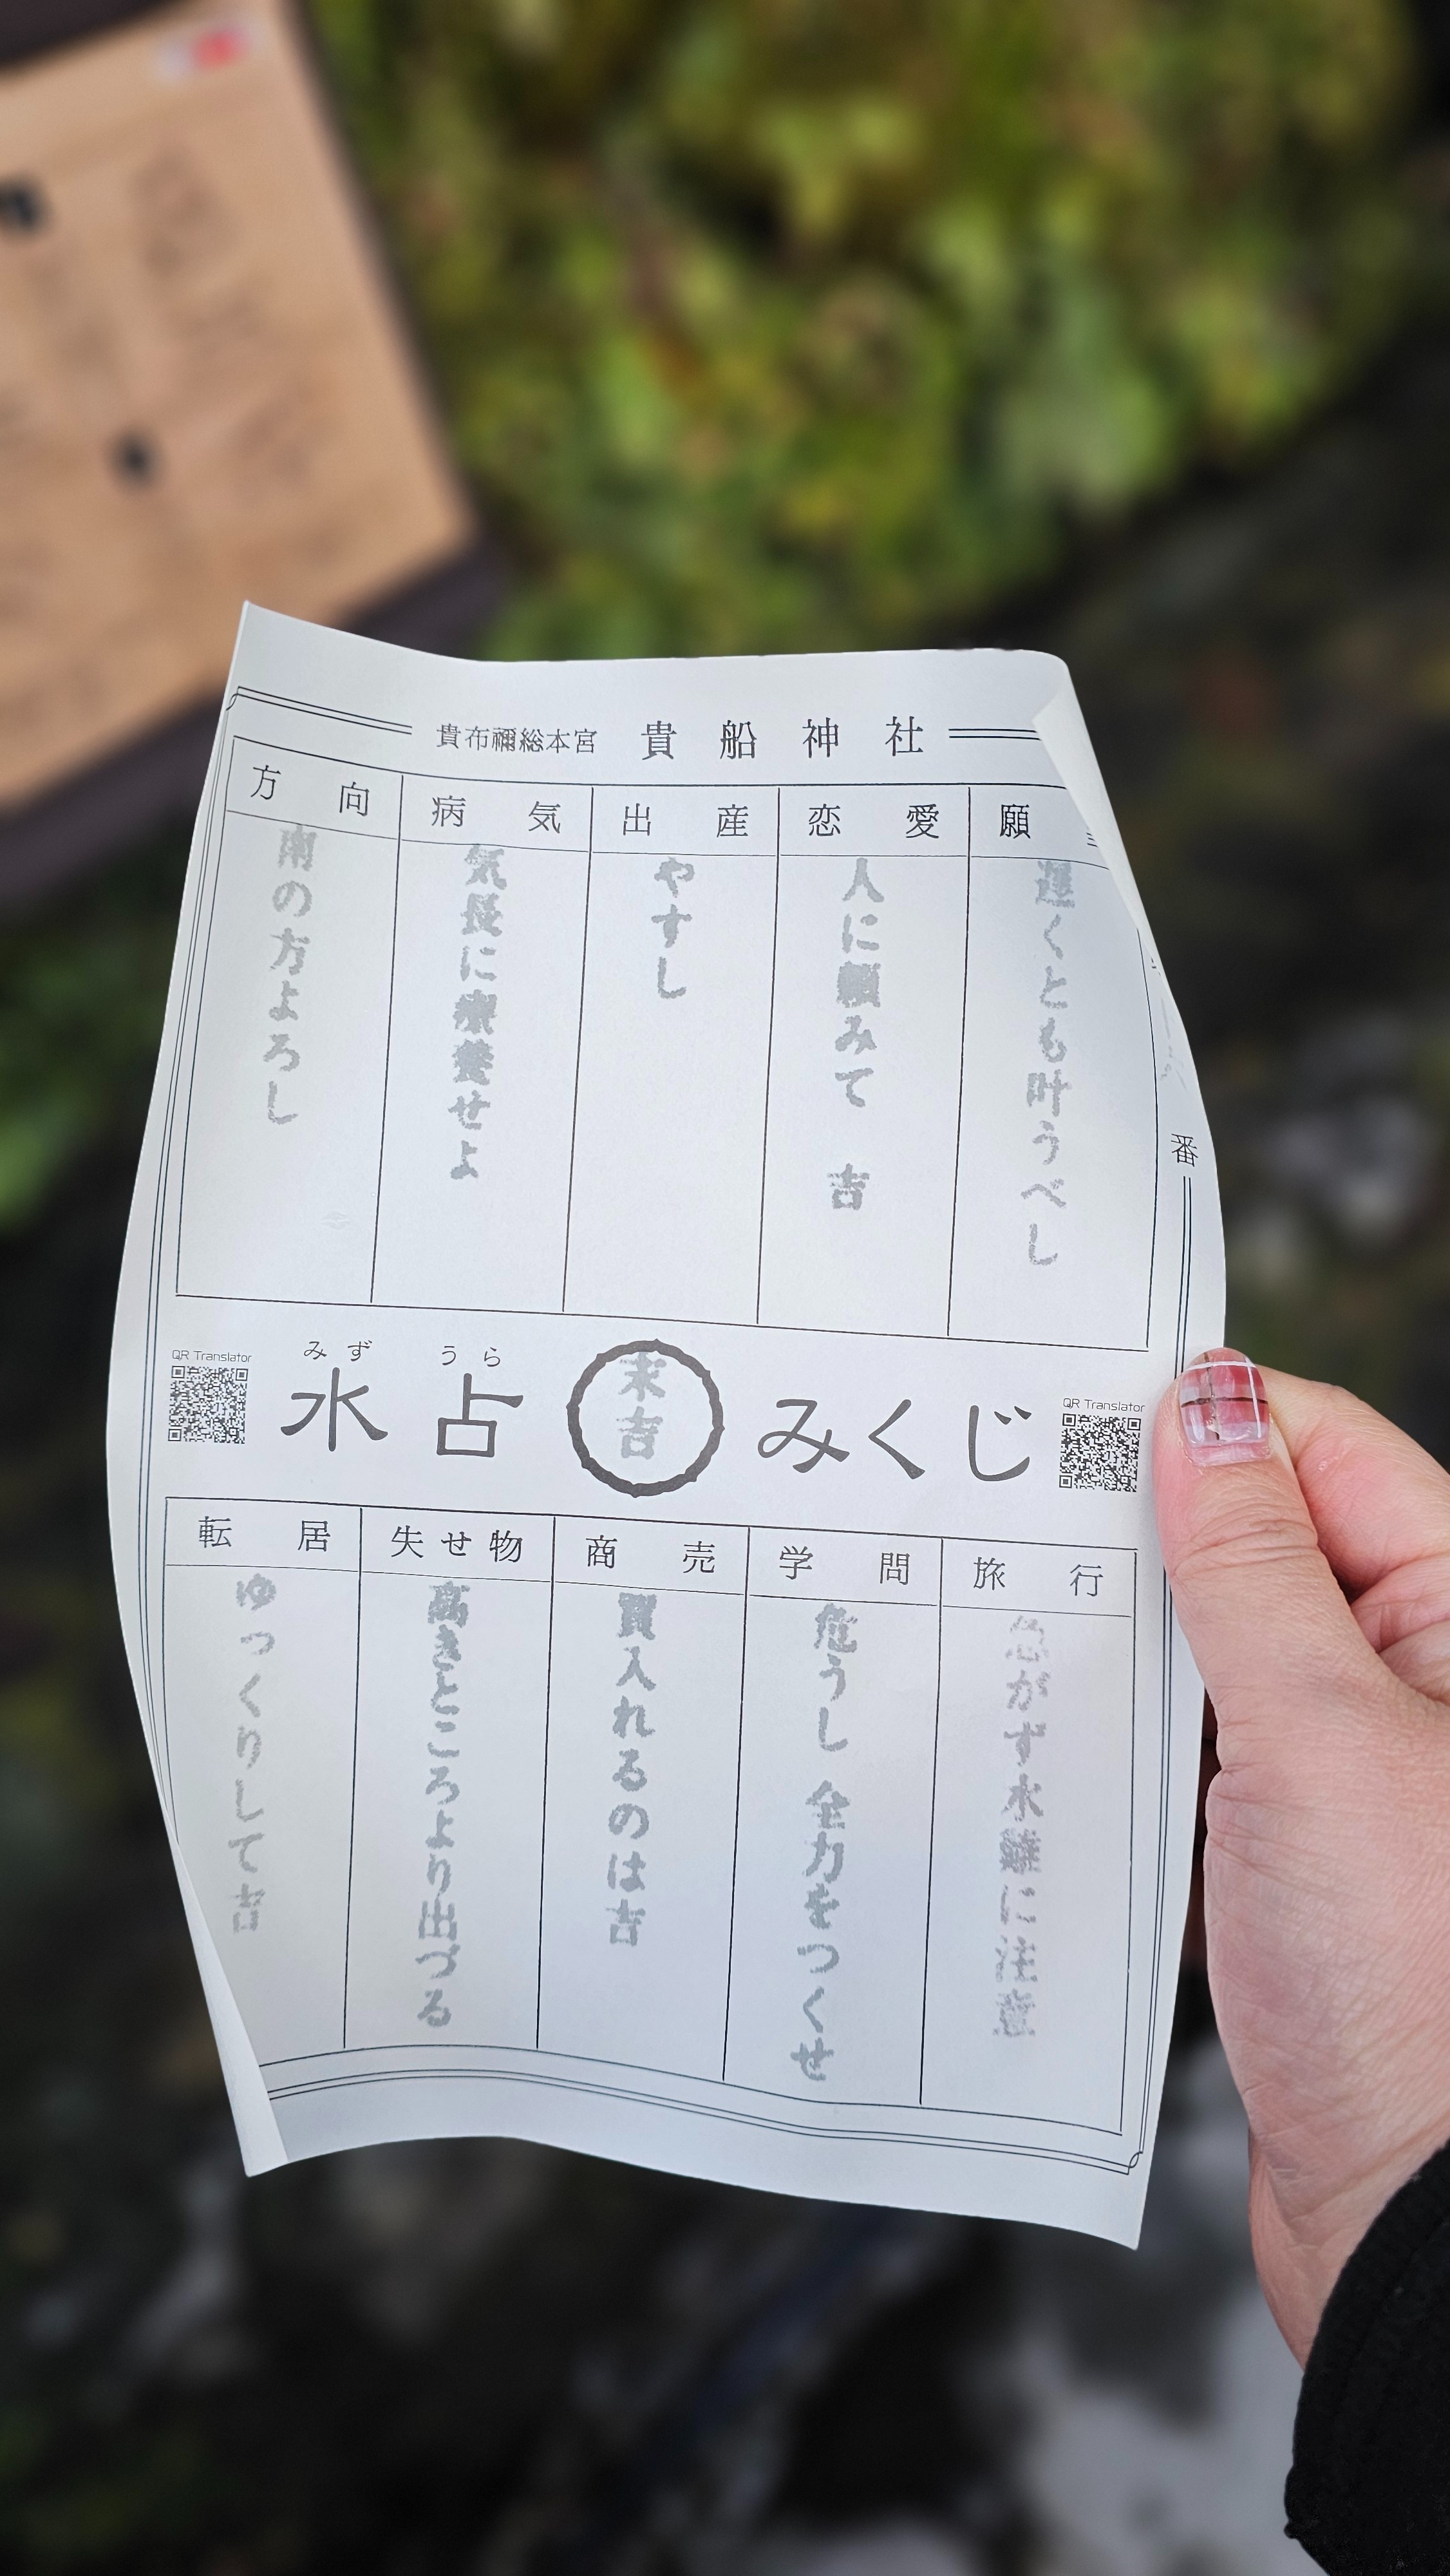 貴布禰総本宮 貴船神社
番
願
遅くとも叶うべし
恋愛
人に頼みて 吉
出産
やすし
病気
気長に療養せよ
方向
南の方よろし
QR Translator
みず うら
水占
末吉
みくじ
QR Translator
旅行
急がず水難に注意
学問
危うし 全力をつくせ
商売
買入れるのは吉
失せ物
高きところより出づる
転居
ゆっくりして吉